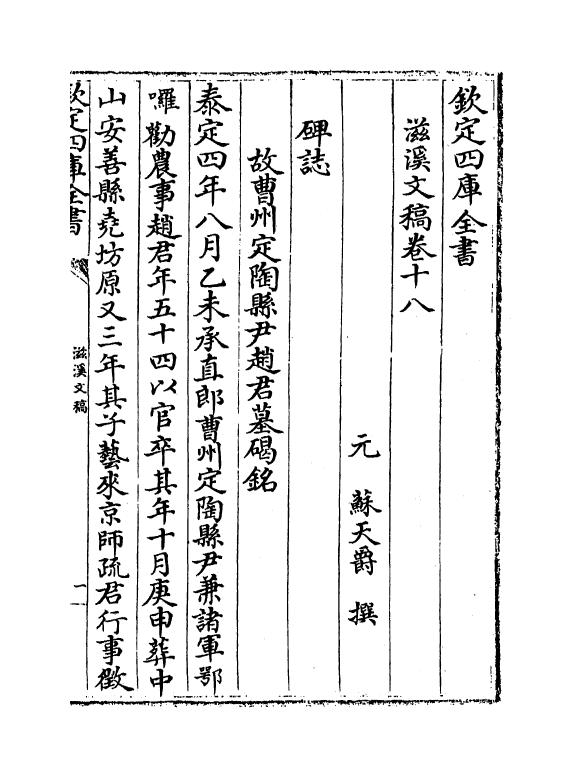 欽定四庫全書
滋溪文稿卷十八
元　蘇天爵　撰
碑誌
故曹州定陶縣尹趙君墓碣銘
泰定四年八月乙未承直郎曹州定陶縣尹兼諸軍鄂
囉勸農事趙君年五十四以官卒其年十月庚申葬中
山安善縣堯坊原又三年其子藝來京師疏君行事徵
欽定四庫全書
滋溪文稿
一